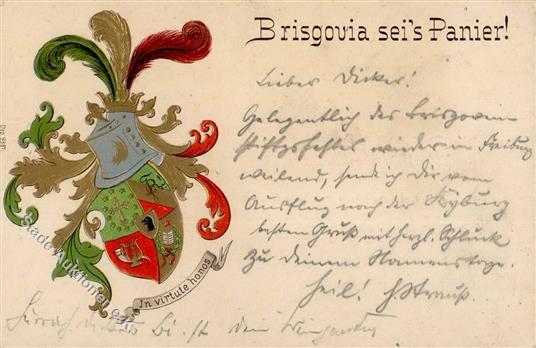 Brisgovia sei's Panier!
Lieber Dicker!
Gelegentlich des Brisgoven
stiftgsfestes wieder in Freiburg
weilend, sende ich Dir vom
Ausflug nach der Kyburg
besten Gruß mit herzl. Schluck
zu Deinem Namenstage
Heil! Strauß.
In virtute honos